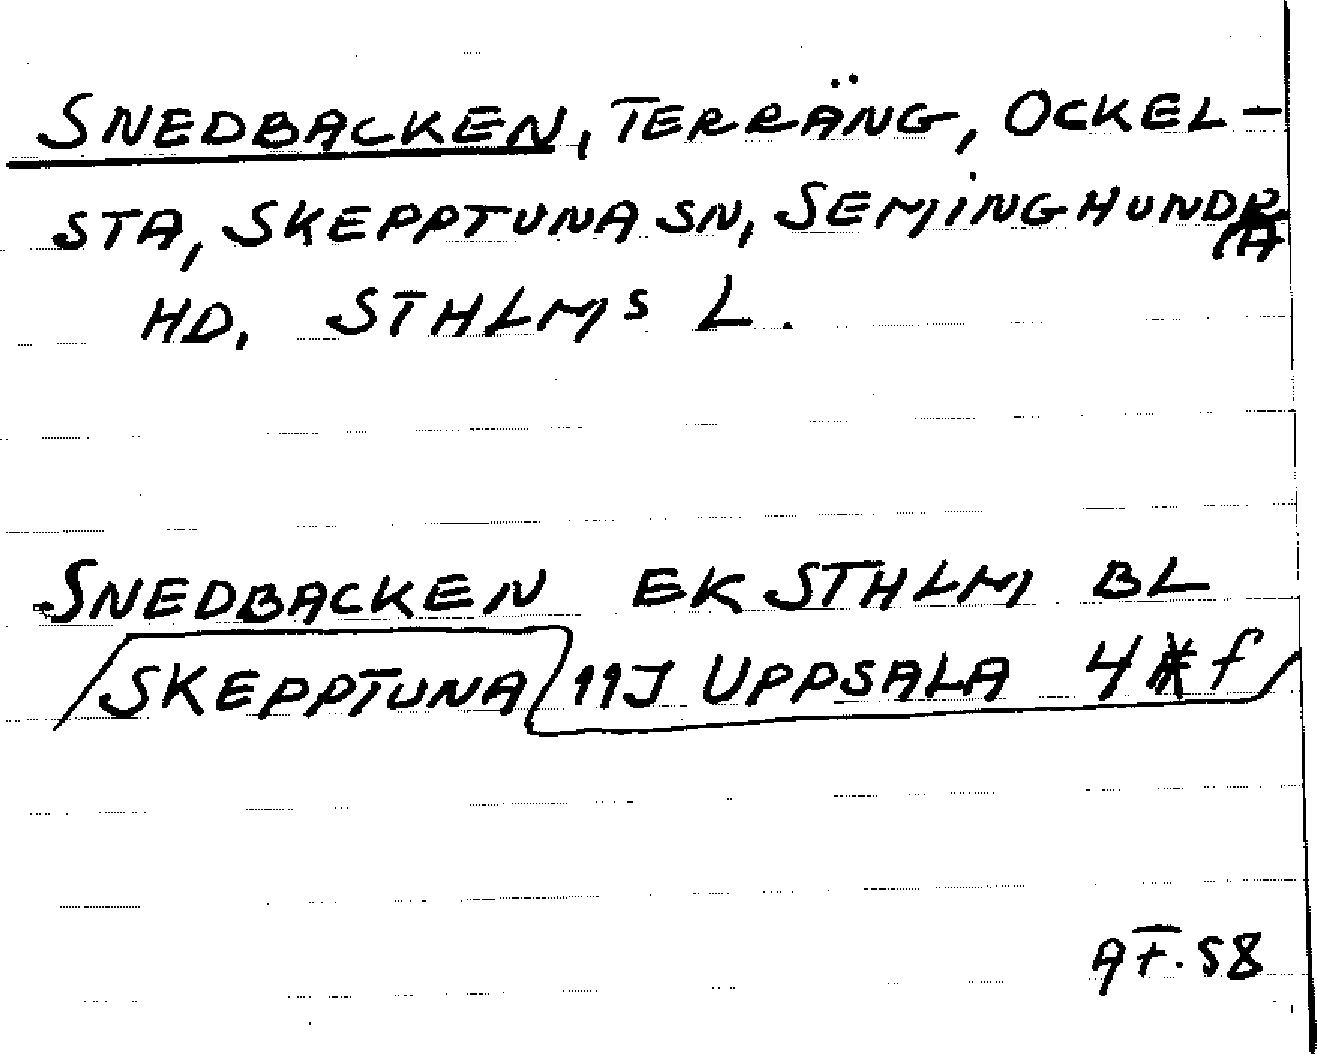 SNEDBACKEN, TERRÄNG, OCKEL-
STA, SKEPPTUNA SN, SEMINGHUNDRA
HD, STHLMS L.
SNEDBACKEN EK STHLM BL
SKEPPTUNA 11J UPPSALA 4 f
AF.58